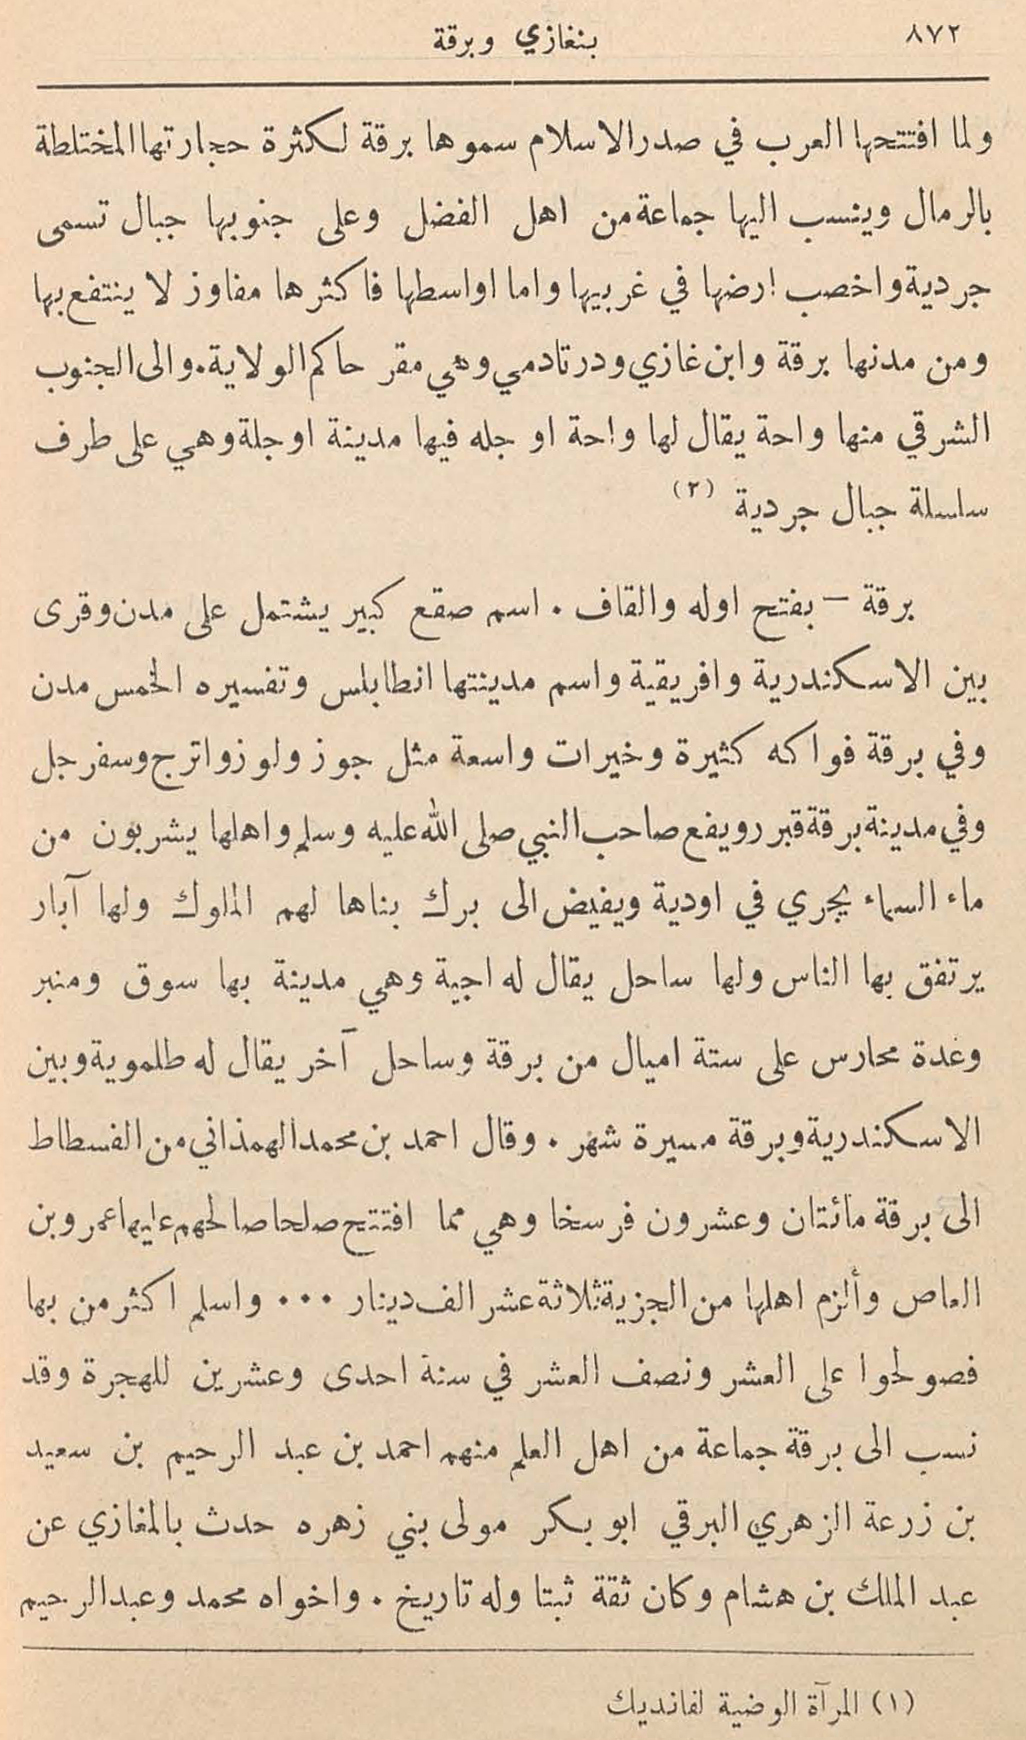 ٨٧٢ بنغازي وبرقة
ولما افتتحها العرب في صدر الاسلام سموها برقة لكثرة حجارتها المختلطة
بالرمال وينسب اليها جماعة من اهل الفضل وعلى جنوبها جبال تسمى
جردية واخصب ارضها في غربيها واما اواسطها فاكثرها مفاوز لا ينتفع بها
ومن مدنها برقة وابن غازي ودرتادمي وهي مقر حاكم الولاية. والى الجنوب
الشرقي منها واحة يقال لها واحة اوجله فيها مدينة اوجلة وهي على طرف
سلسلة جبال جردية (٢)
برقة — بفتح اوله والقاف . اسم صقع كبير يشتمل على مدن وقرى
بين الاسكندرية وافريقية واسم مدينتها انطابلس وتفسيره الخمس مدن
وفي برقة فواكه كثيرة وخيرات واسعة مثل جوز ولوز واترج وسفرجل
وفي مدينة برقة قبر رويفع صاحب النبي صلى الله عليه وسلم واهلها يشربون من
ماء السماء يجري في اودية ويفيض الى برك بناها لهم الملوك ولها آبار
يرتفق بها الناس ولها ساحل يقال له اجية وهي مدينة بها سوق ومنبر
وعدة محارس على ستة اميال من برقة وساحل آخر يقال له طلموية وبين
الاسكندرية وبرقة مسيرة شهر . وقال احمد بن محمد الهمذاني من الفسطاط
الى برقة مائتان وعشرون فرسخا وهي مما افتتح صلحا صالحهم عليها عمرو بن
العاص وألزم اهلها من الجزية ثلاثة عشر الف دينار ... واسلم اكثر من بها
فصولحوا على العشر ونصف العشر في سنة احدى وعشرين للهجرة وقد
نسب الى برقة جماعة من اهل العلم منهم احمد بن عبد الرحيم بن سعيد
بن زرعة الزهري البرقي ابو بكر مولى بني زهره حدث بالمغازي عن
عبد الملك بن هشام وكان ثقة ثبتا وله تاريخ . واخواه محمد وعبد الرحيم
(١) المرآة الوضية لفانديك